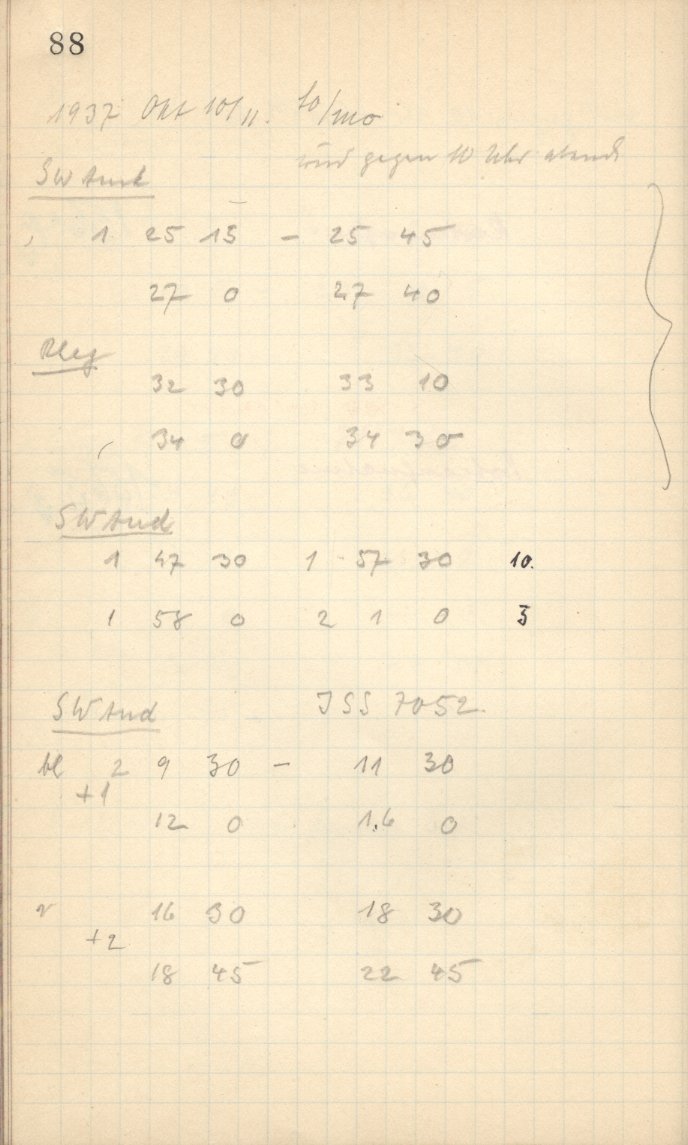 88
1937 Okt 10/11. So/Mo
wird gegen 10 Uhr abends
SW And
1 25 15 - 25 45
27 0 27 40
32 30 33 10
34 0 34 30
SW And
1 47 30 1 57 30 10.
1 58 0 2 1 0 3
SW And JSS 7052.
bl 2 9 30 - 11 30
+1
12 0 16 0
v 16 30 18 30
+2
18 45 22 45